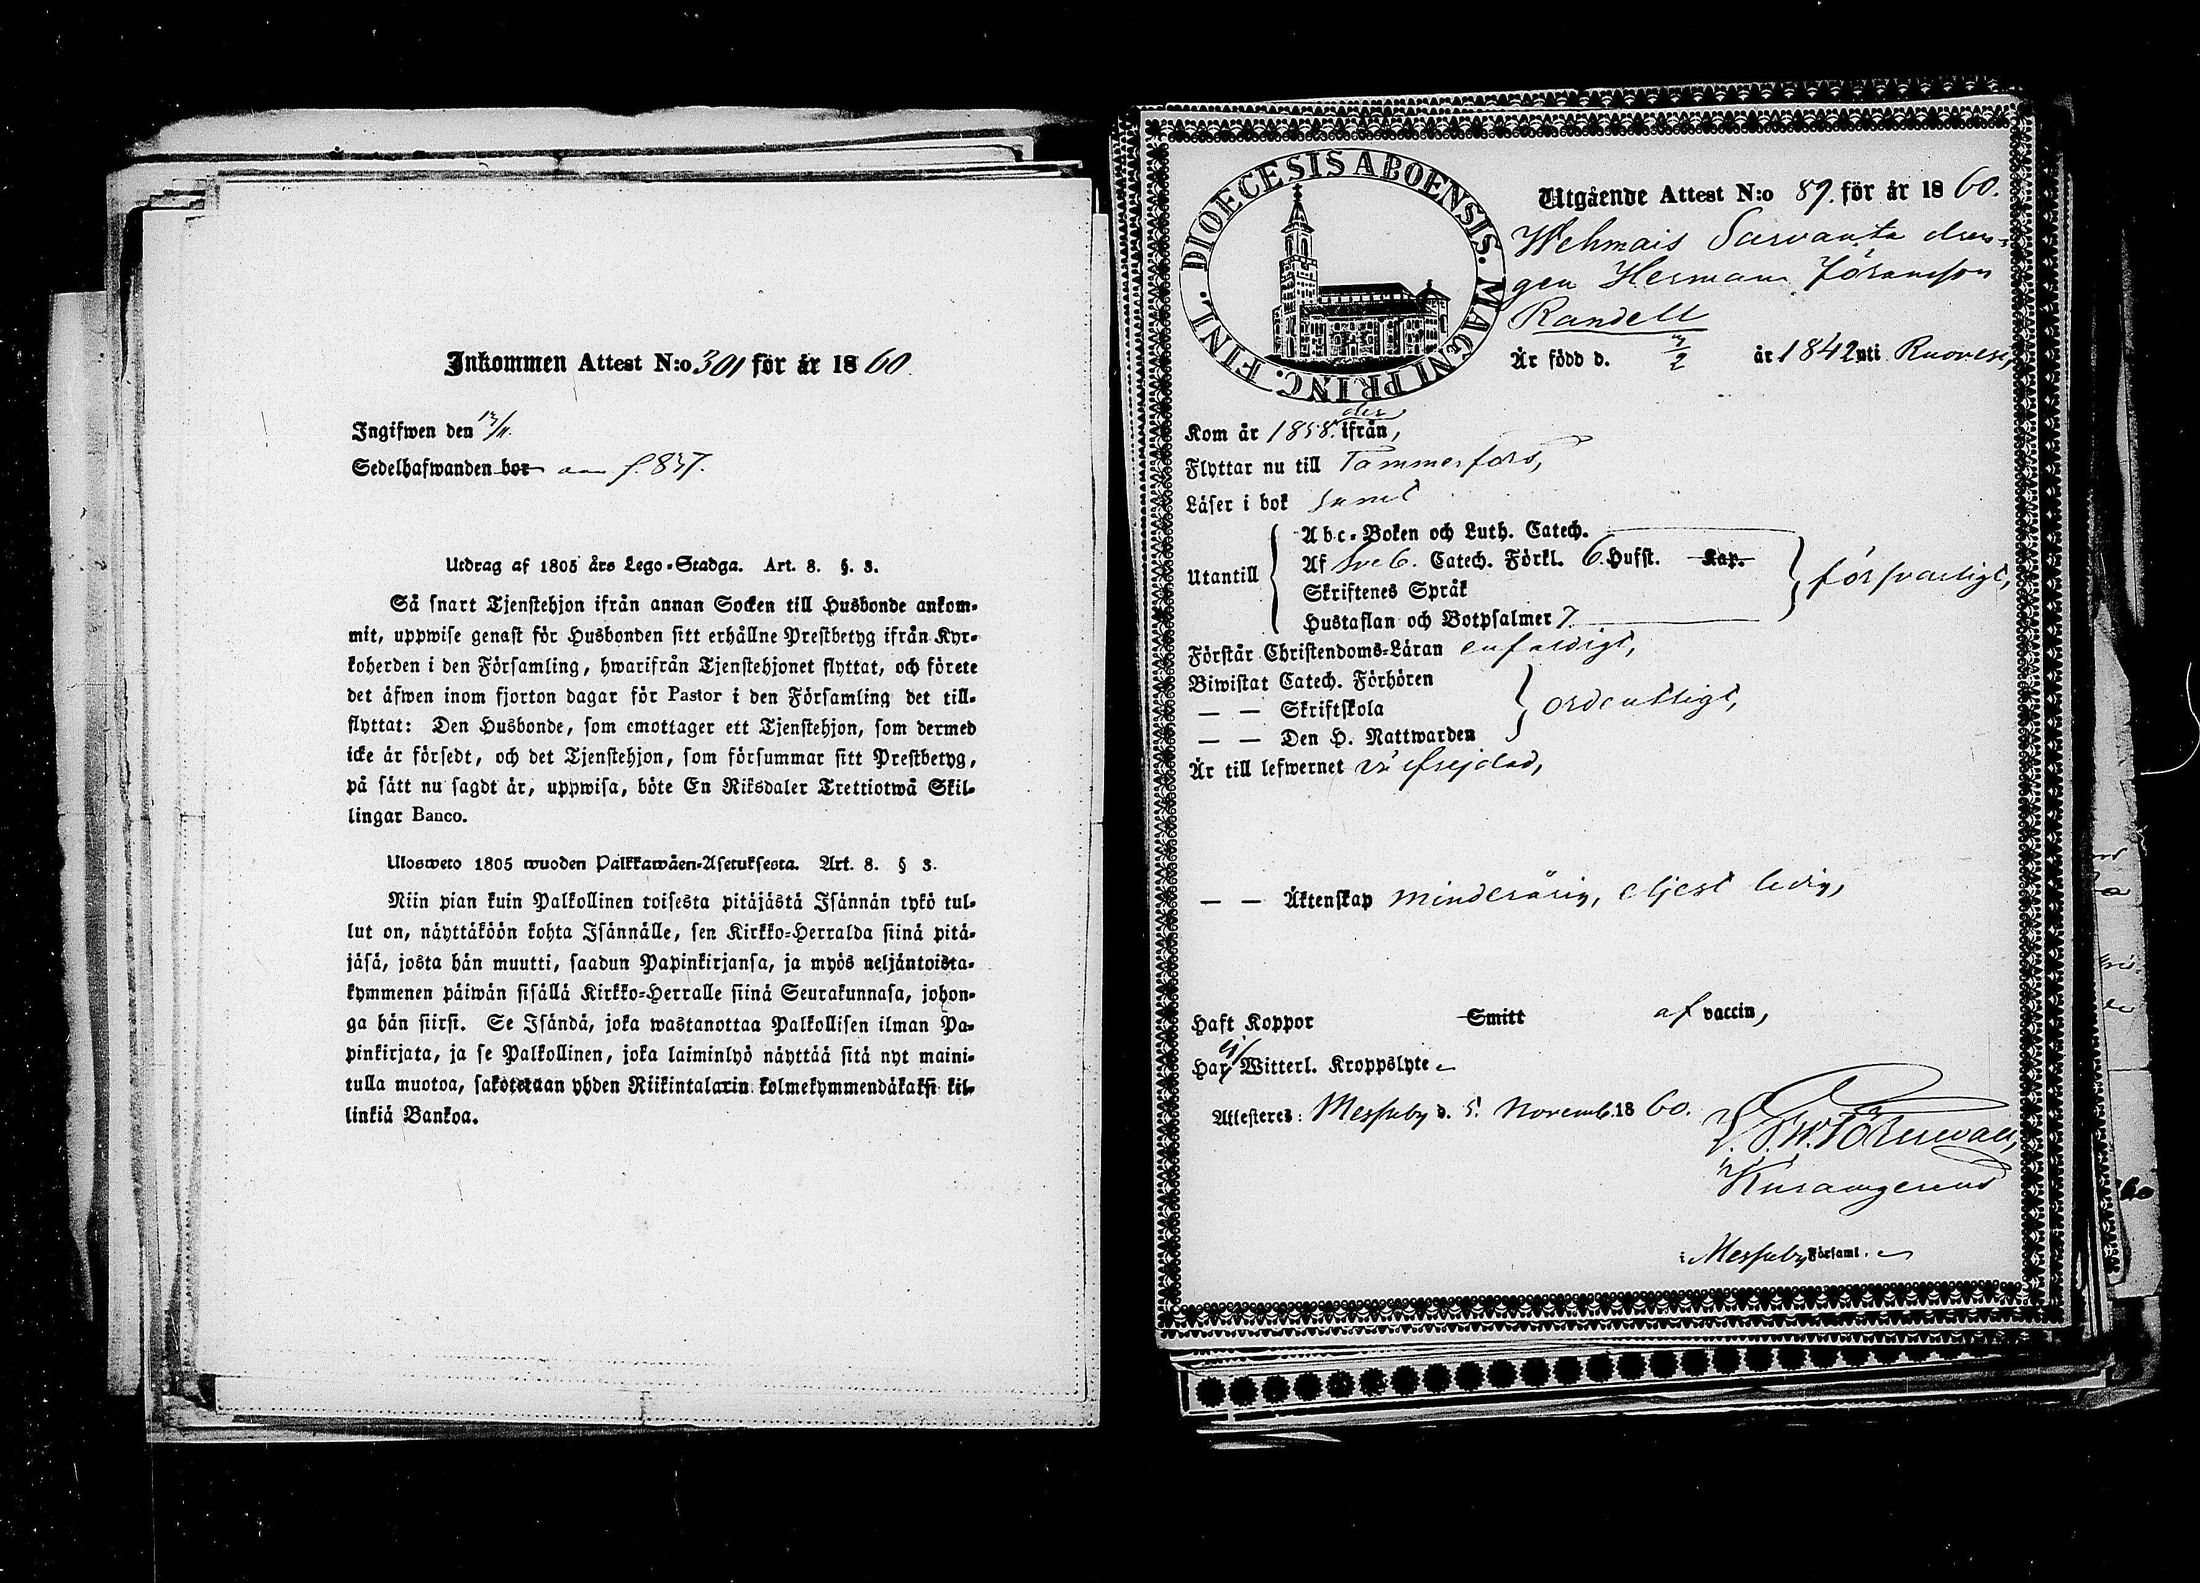 Inkommen Attest N:o 301 för år 1860.
Ingifwen den 13/11.
Sedelhafwanden bor f. 837.
Utdrag af 1805 års Lego-Stadga. Art. 8. §. 3.
Så snart Tjenstehjon ifrån annan Socken till Husbonde ankom-
mit, uppwise genast för Husbonden sitt erhållne Prestbetyg ifrån Kyr-
koherden i den Församling, hwarifrån Tjenstehjonet flyttat, och förete
det äfwen inom fjorton dagar för Pastor i den Församling det till-
flyttat: Den Husbonde, som emottager ett Tjenstehjon, som dermed
icke är försedt, och det Tjenstehjon, som försummar sitt Prestbetyg,
på sätt nu sagdt är, uppwisa, böte En Riksdaler Trettiotwå Skil-
lingar Banco.
Ulosweto 1805 wuoden Palkkawäen-Asetuksesta. Art. 8. § 3.
Niin pian kuin Palkollinen toisesta pitäjästä Isännän tykö tul-
lut on, näyttäköön kohta Isännälle, sen Kirkko-Herralda siinä pitä-
jäsä, josta hän muutti, saadun Papinkirjansa, ja myös neljäntoista-
kymmenen päiwän sisällä Kirkko-Herralle siinä Seurakunnasa, johon-
ga hän siirsi. Se Isändä, joka wastanottaa Palkollisen ilman Pa-
pinkirjata, ja se Palkollinen, joka laiminlyö näyttää sitä nyt maini-
tulla muotoa, sakotetaan yhden Riikintalarin kolmekymmendäkaksi kil-
linkiä Bankoa.
DIOECESIS ABOENSIS. MAGNI PRINC. FINL.
Utgående Attest N:o 89. för år 1860.
Wehmais Sarvanta dren-
gen Herman Jöransson
Randell
Är född d. /2 år 1842 uti Ruovesi,
Kom år 1858. der ifrån,
Flyttar nu till Tammerfors,
Läser i bok
Utantill
Abc-Boken och Luth. Catech.
Af Sveb. Catech. Förkl. 6. Hufst. Kap.
Skriftenes Språk
Hustaflan och Botpsalmer 7.
försvarligt,
Förstår Christendoms-Läran enfaldigt,
Biwistat Catech. Förhören
— — Skriftskola
— — Den H. Nattwarden
ordentligt,
Är till lefwernet väl frejdad,
— — Äktenskap minderårig, eljest ledig,
Haft Koppor Smitt af vaccin,
Har ej Witterl. Kroppslyte
Attesteres: Messuby d. 5. Novemb. 1860.
i Messuby Församl.